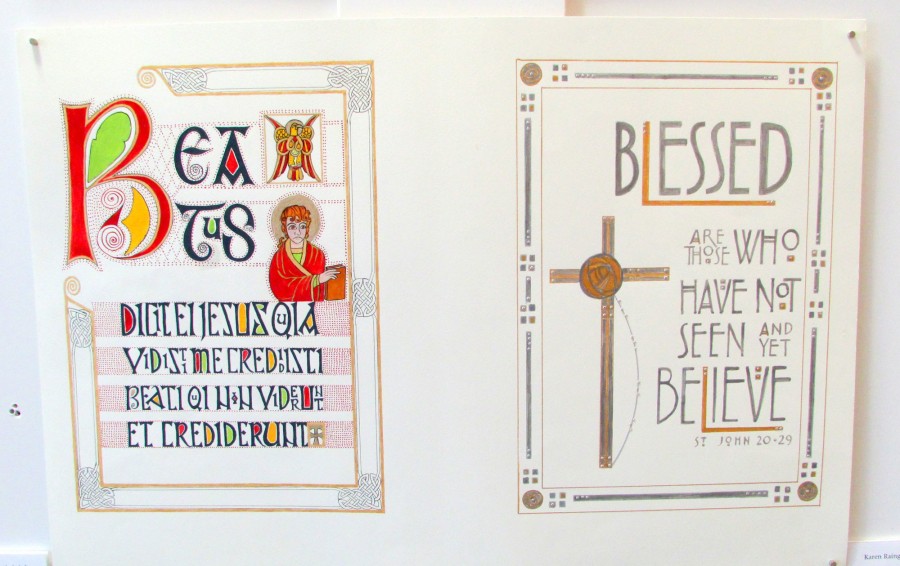 BEA
TUS
DICIT EI JESUS QUIA
VIDISTI ME CREDIDISTI
BEATI QUI NON VIDERUNT
ET CREDIDERUNT
BLESSED
ARE THOSE WHO
HAVE NOT
SEEN AND YET
BELIEVE
ST JOHN 20-29
Karen